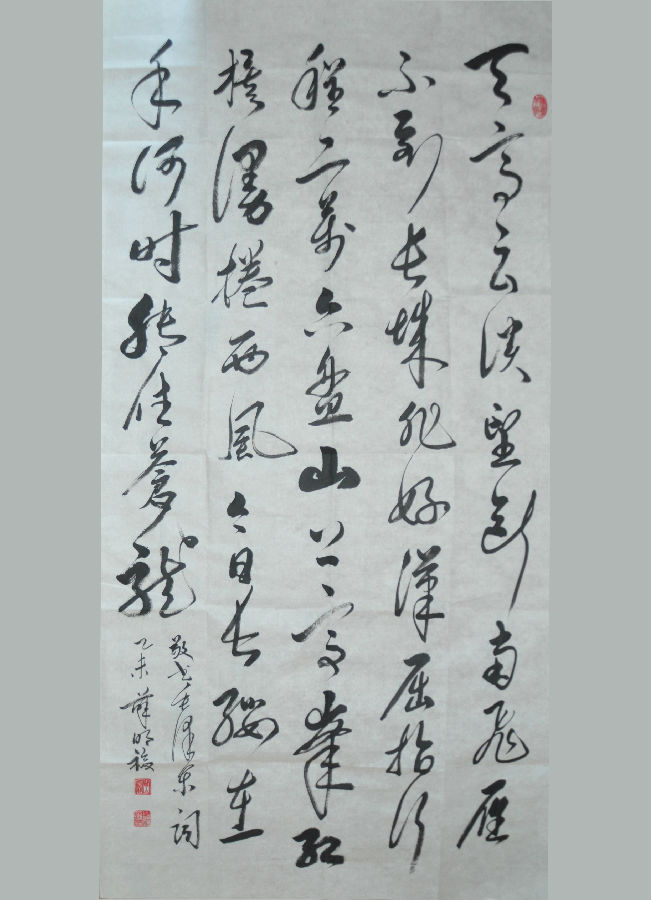 天高云淡望断南飞雁
不到长城非好漢屈指行
程二萬六盘山上高峯红
旗漫捲西風今日长缨在
手何时缚住蒼龍
敬书毛泽东词
乙未 薛明